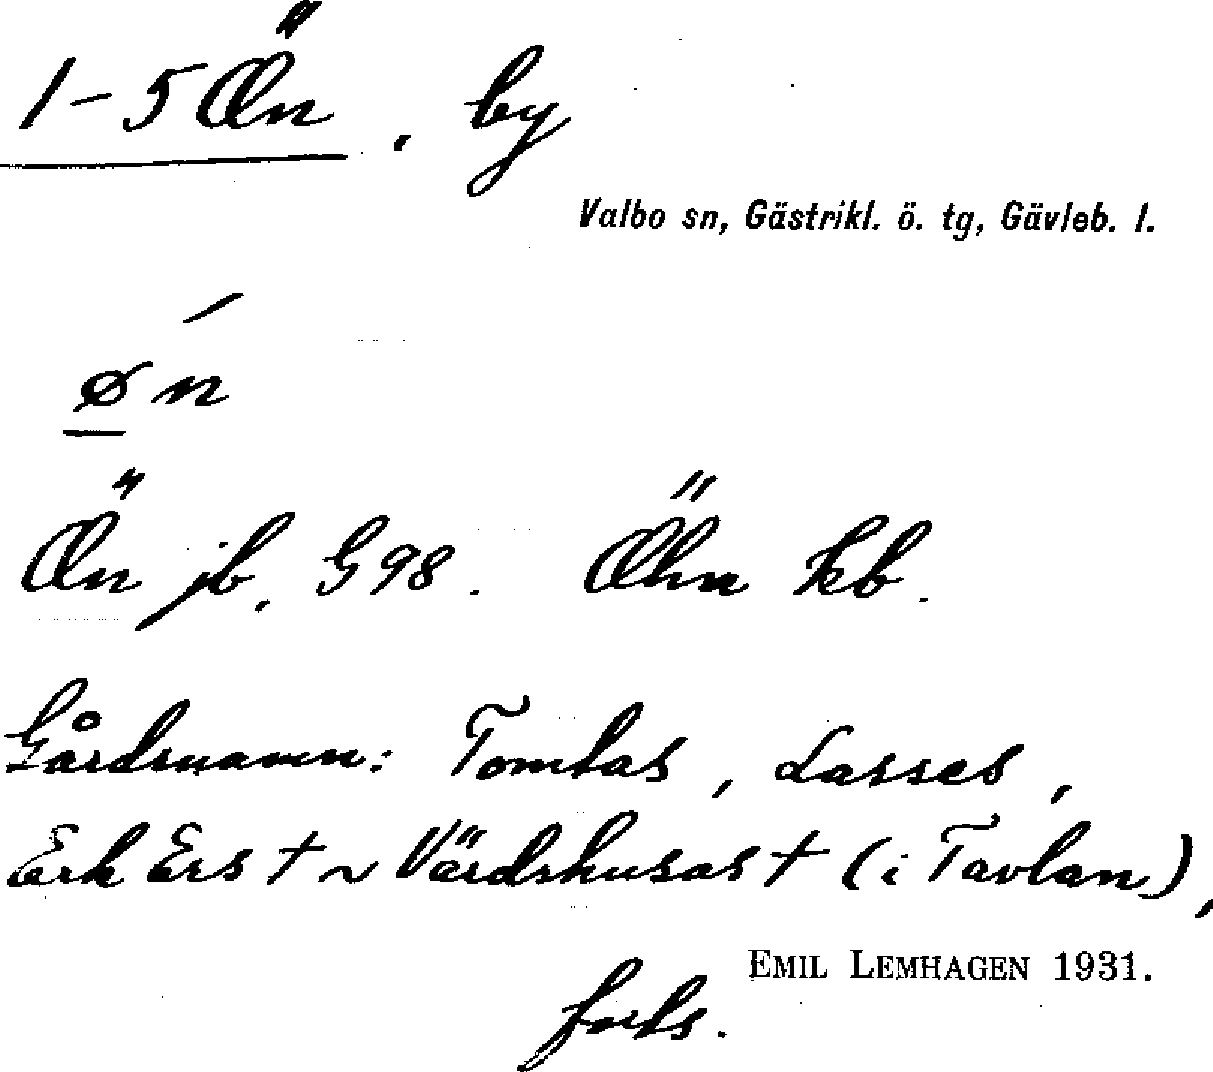 1-5 Ön, by
Valbo sn, Gästrikl. ö. tg, Gävleb. l.
ǿn
Ön jb. G98. Öhn kb.
Gårdsnamn: Tomtas, Lasses,
Erk Ers † ~ Värdshusas † (i Tavlan),
EMIL LEMHAGEN 1931.
forts.